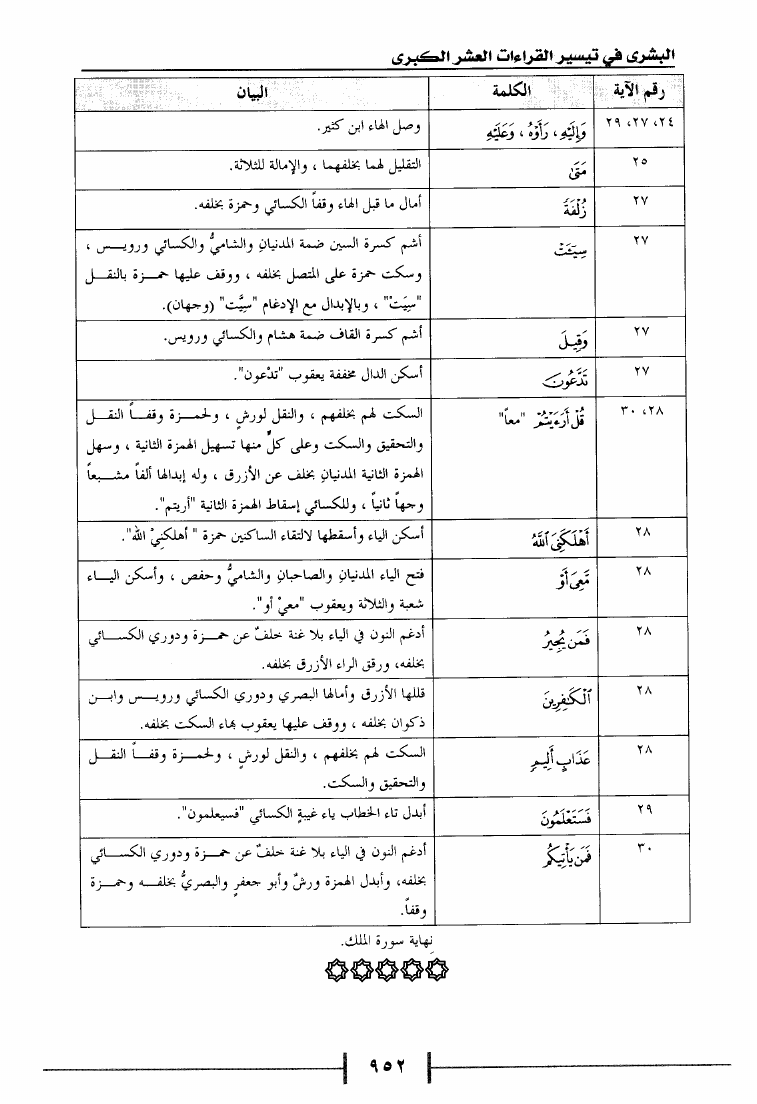 البشرى في تيسير القراءات العشر الكبرى
رقم الآية الكلمة البيان
٢٤، ٢٧، ٢٩ وَإِلَيْهِ ، رَأَوْهُ ، وَعَلَيْهِ وصل الهاء ابن كثير.
٢٥ مَتَىٰ التقليل لهما بخلفهما ، والإمالة للثلاثة.
٢٧ زُلْفَةً أمال ما قبل الهاء وقفاً الكسائي وحمزة بخلفه.
٢٧ سِيٓـَٔتْ أشم كسرة السين ضمة المدنيانِ والشاميُّ والكسائي ورويس ،
وسكت حمزة على المتصل بخلفه ، ووقف عليها حمزة بالنقل
"سِيَتْ" ، وبالإبدال مع الإدغام "سِيَّت" (وجهان).
٢٧ وَقِيلَ أشم كسرة القاف ضمة هشام والكسائي ورويس.
٢٧ تَدَّعُونَ أسكن الدال مخففة يعقوب "تدْعون".
٢٨، ٣٠ قُلْ أَرَءَيْتُمْ "معاً" السكت لهم بخلفهم ، والنقل لورشٍ ، ولحمزة وقفاً النقل
والتحقيق والسكت وعلى كلٍّ منها تسهيل الهمزة الثانية ، وسهل
الهمزة الثانية المدنيانِ بخلف عن الأزرق ، وله إبدالها ألفاً مشبعاً
وجهاً ثانياً ، وللكسائي إسقاط الهمزة الثانية "أريتم".
٢٨ أَهْلَكَنِىَ ٱللَّهُ أسكن الياء وأسقطها لالتقاء الساكنين حمزة " أهلكنيْ الله".
٢٨ مَّعِىَ أَوْ فتح الياء المدنيانِ والصاحبانِ والشاميُّ وحفص ، وأسكن الياء
شعبة والثلاثة ويعقوب "معيْ أو".
٢٨ فَمَن يُجِيرُ أدغم النون في الياء بلا غنة خلفٌ عن حمزة ودوري الكسائي
بخلفه، ورقق الراء الأزرق بخلفه.
٢٨ ٱلْكَٰفِرِينَ قللها الأزرق وأمالها البصري ودوري الكسائي ورويس وابن
ذكوان بخلفه ، ووقف عليها يعقوب بهاء السكت بخلفه.
٢٨ عَذَابٍ أَلِيمٍ السكت لهم بخلفهم ، والنقل لورشٍ ، ولحمزة وقفاً النقل
والتحقيق والسكت.
٢٩ فَسَتَعْلَمُونَ أبدل تاء الخطاب ياء غيبةٍ الكسائي "فسيعلمون".
٣٠ فَمَن يَأْتِيكُم أدغم النون في الياء بلا غنة خلفٌ عن حمزة ودوري الكسائي
بخلفه، وأبدل الهمزة ورشٌ وأبو جعفرٍ والبصريُّ بخلفه وحمزة
وقفاً.
نهاية سورة الملك.
٩٥٢